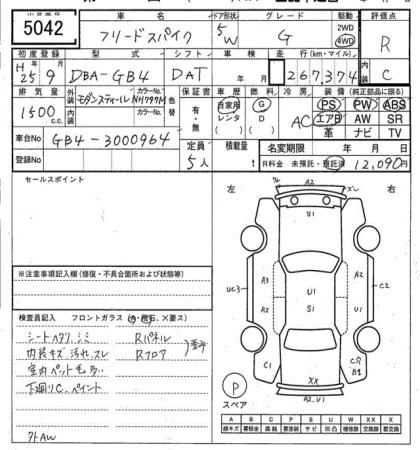 5042
車 名
フリードスパイク
ドア形状
5
W
グレード
G
駆動
2WD
4WD
評価点
R
初度登録
H25年9月
型 式
DBA-GB4
シフト
DAT
車 検
年 月
走 行(km・マイル)
267,374
内装
C
排 気 量
1500 c.c.
外装
モダンスティールM
カラーNo.
NH797M
内装
カラーNo.
色替
保証書
有・無
車 歴
自家用
レンタ
( )
燃料
G
D
( )
冷 房
AC
装 備(純正部品に限る)
PS PW ABS
エアB AW SR
革 ナビ TV
車台No
GB4-3000964
登録No
定員
5人
積載量
t
名変期限 年 月 日
R料金 未預託・預託済 12,090円
セールスポイント
※注意事項記入欄(修復・不具合箇所および状態等)
検査員記入 フロントガラス(A・飛石、X要ス)
シートヘタリ、シミ
内装キズ、汚れ、スレ
室内ペット毛多い
下廻りC、ペイント
Rパネル
Rフロア
外AW
左 右
A2
ズレ
U1
A3
U1
A2
A2
UC3
U2
S1
C2
A2
U1
C1
C穴
B1
XX
A2, U1
P
スペア
A B C P S U W X XX
線キズ 要板金 腐食 要塗装 サビ 凹凸 補修跡 交換跡 要交換